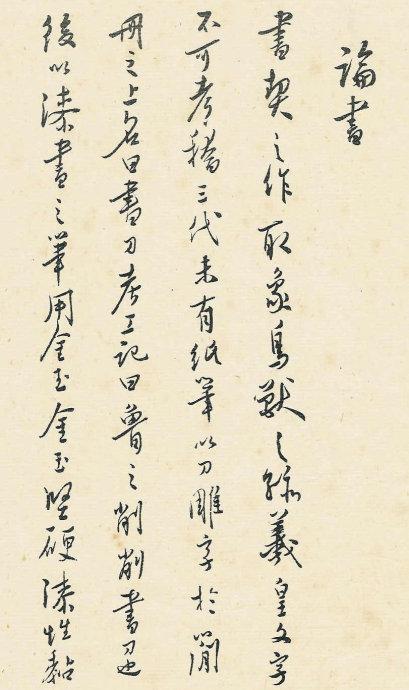 論書
書契之作取象鳥獸之跡羲皇文字
不可考稽三代未有紙筆以刀雕字於簡
冊之上名曰書刀考工記曰魯之削削書刀也
後以漆書之筆用金玉金玉堅硬漆性黏